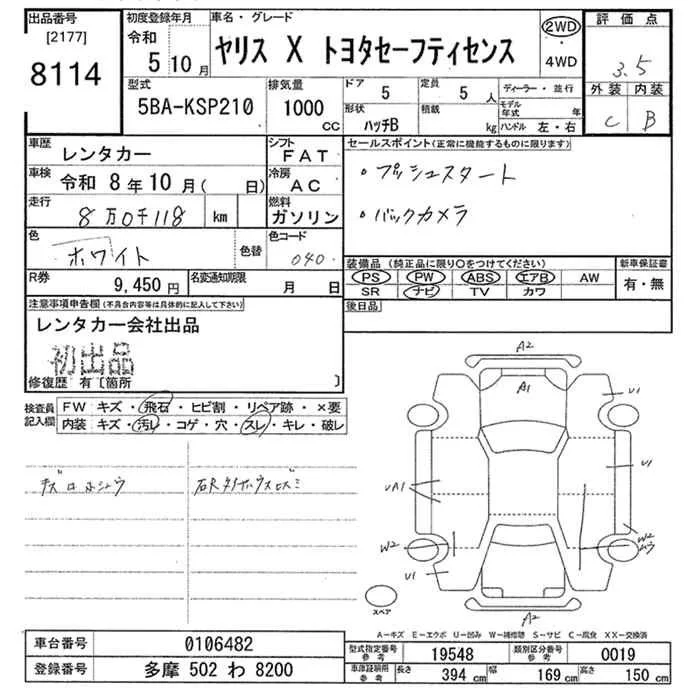 出品番号
[2177]
8114
初度登録年月
令和
5 10 月
車名・グレード
ヤリス X トヨタセーフティセンス
2WD
・
4WD
評価点
3.5
外装 内装
C B
型式
5BA-KSP210
排気量
1000
cc
ドア
5
定員
5 人
形状
ハッチB
積載
kg
ディーラー・並行
モデル年式 年
ハンドル 左・右
車歴
レンタカー
シフト
FAT
車検
令和 8年10月( 日)
冷房
AC
走行
8万0千118 km
燃料
ガソリン
色
ホワイト
色替
色コード
040
R券
9,450円
名変通知期限
月 日
セールスポイント(正常に機能するものに限ります)
・プッシュスタート
・バックカメラ
装備品(純正品に限り○をつけてください)
PS PW ABS エアB AW
SR ナビ TV カワ
新車保証書
有・無
後日品
注意事項申告欄(不具合内容等は具体的に記入して下さい)
レンタカー会社出品
初出品
修復歴 有〔箇所 〕
検査員
記入欄
FW キズ・飛石・ヒビ割・リペア跡・×要
内装 キズ・汚レ・コゲ・穴・スレ・キレ・破レ
A2
A1
U1
U1
UA1
W2
W2
U1
A2
スペア
A-キズ E-エクボ U-凹み W-補修跡 S-サビ C-腐食 XX-交換済
車台番号
0106482
登録番号
多摩 502 わ 8200
型式指定番号
参考
19548
類別区分番号
参考
0019
車庫証明用
参考
長さ 394 cm 幅 169 cm 高さ 150 cm